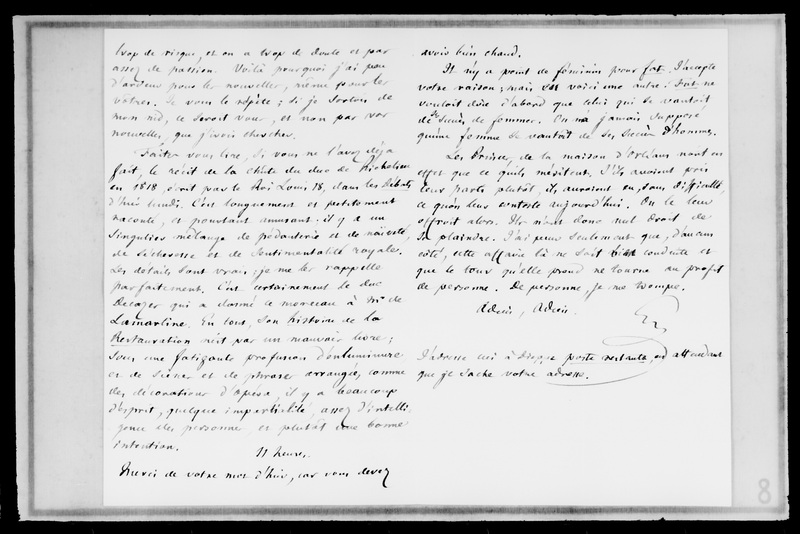 trop de risque, et on a trop de doute et pas
assez de passion. Voilà pourquoi j'ai peu
d'ardeur pour les nouvelles, même pour les
vôtres. Je vous le répète ; si je sortois de
mon nid, ce seroit pour, et non par vos
nouvelles, que j'irois chercher.
Faites vous lire, si vous ne l'avez déjà
fait, le récit de la chute du duc de Richelieu
en 1818 écrit par le Roi Louis 18, dans les Débats
d'hier lundi. C'est longuement et petitement
raconté, et pourtant amusant. il y a un
singulier mélange de pédanterie et de naïveté
de sécheresse et de sentimentalité royale.
Les détails sont vrais ; je me les rappelle
parfaitement. C'est certainement le duc
Decazes qui a donné ce morceau à Mr de
Lamartine. En tout, son histoire de la
Restauration n'est pas un mauvais livre ;
sous une fatigante profusion d'enluminure
et de scènes et de phrases arrangées comme
des décorations d'opéra, il y a beaucoup
d'esprit, quelque impartialité, assez d'intelli-
gence des personnes et plutôt une bonne
intention.
11 heures.
Merci de votre mot d'hier, car vous devez
avoir bien chaud.
Il n'y a point de féminin pour fat. J'accepte
votre raison ; mais en voici une autre : Fat ne
vouloit dire d'abord que celui qui se vantoit
de succès de femmes. On n'a jamais supposé
qu'une femme se vantoit de ses succès d'hommes.
Les Princes de la maison d'Orléans n'ont en
effet que ce qu'ils méritent. S'ils avoient pris
leur parti plutôt, ils auroient eu, sans difficulté,
ce qu'on leur conteste aujourd'hui. On le leur
offroit alors. Ils n'ont donc nul droit de
se plaindre. J'ai peur seulement que, d'aucun
côté, cette affaire là ne soit bien conduite et
que le tour qu'elle prend ne tourne au profit
de personne. De personne, je me trompe.
Adieu, Adieu.
G
J'adresse ceci à Dieppe poste restante, en attendant
que je sache votre adresse.
8